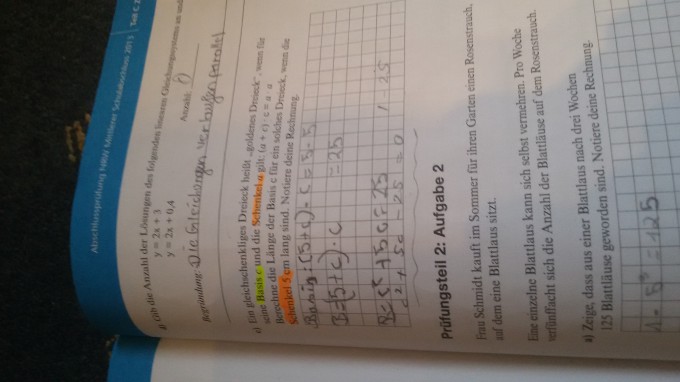 Abschlussprüfung NRW Mittlerer Schulabschluss 2013 | Teil C 2
d) Gib die Anzahl der Lösungen des folgenden linearen Gleichungssystems an und
y = 2x + 3
y = 2x + 0,4
Anzahl:
Begründung: Die Gleichungen verlaufen parallel
e) Ein gleichschenkliges Dreieck heißt „goldenes Dreieck“, wenn für
seine Basis c und die Schenkel a gilt: (a + c) · c = a · a
Berechne die Länge der Basis c für ein solches Dreieck, wenn die
Schenkel 5 cm lang sind. Notiere deine Rechnung.
Basis: (5+c) · c = 5 · 5
(5+c) · c = 25
+ 5c = 25 | - 25
c² + 5c - 25 = 0
Prüfungsteil 2: Aufgabe 2
Frau Schmidt kauft im Sommer für ihren Garten einen Rosenstrauch,
auf dem eine Blattlaus sitzt.
Eine einzelne Blattlaus kann sich selbst vermehren. Pro Woche
verfünffacht sich die Anzahl der Blattläuse auf dem Rosenstrauch.
a) Zeige, dass aus einer Blattlaus nach drei Wochen
125 Blattläuse geworden sind. Notiere deine Rechnung.
1 · 5³ = 125